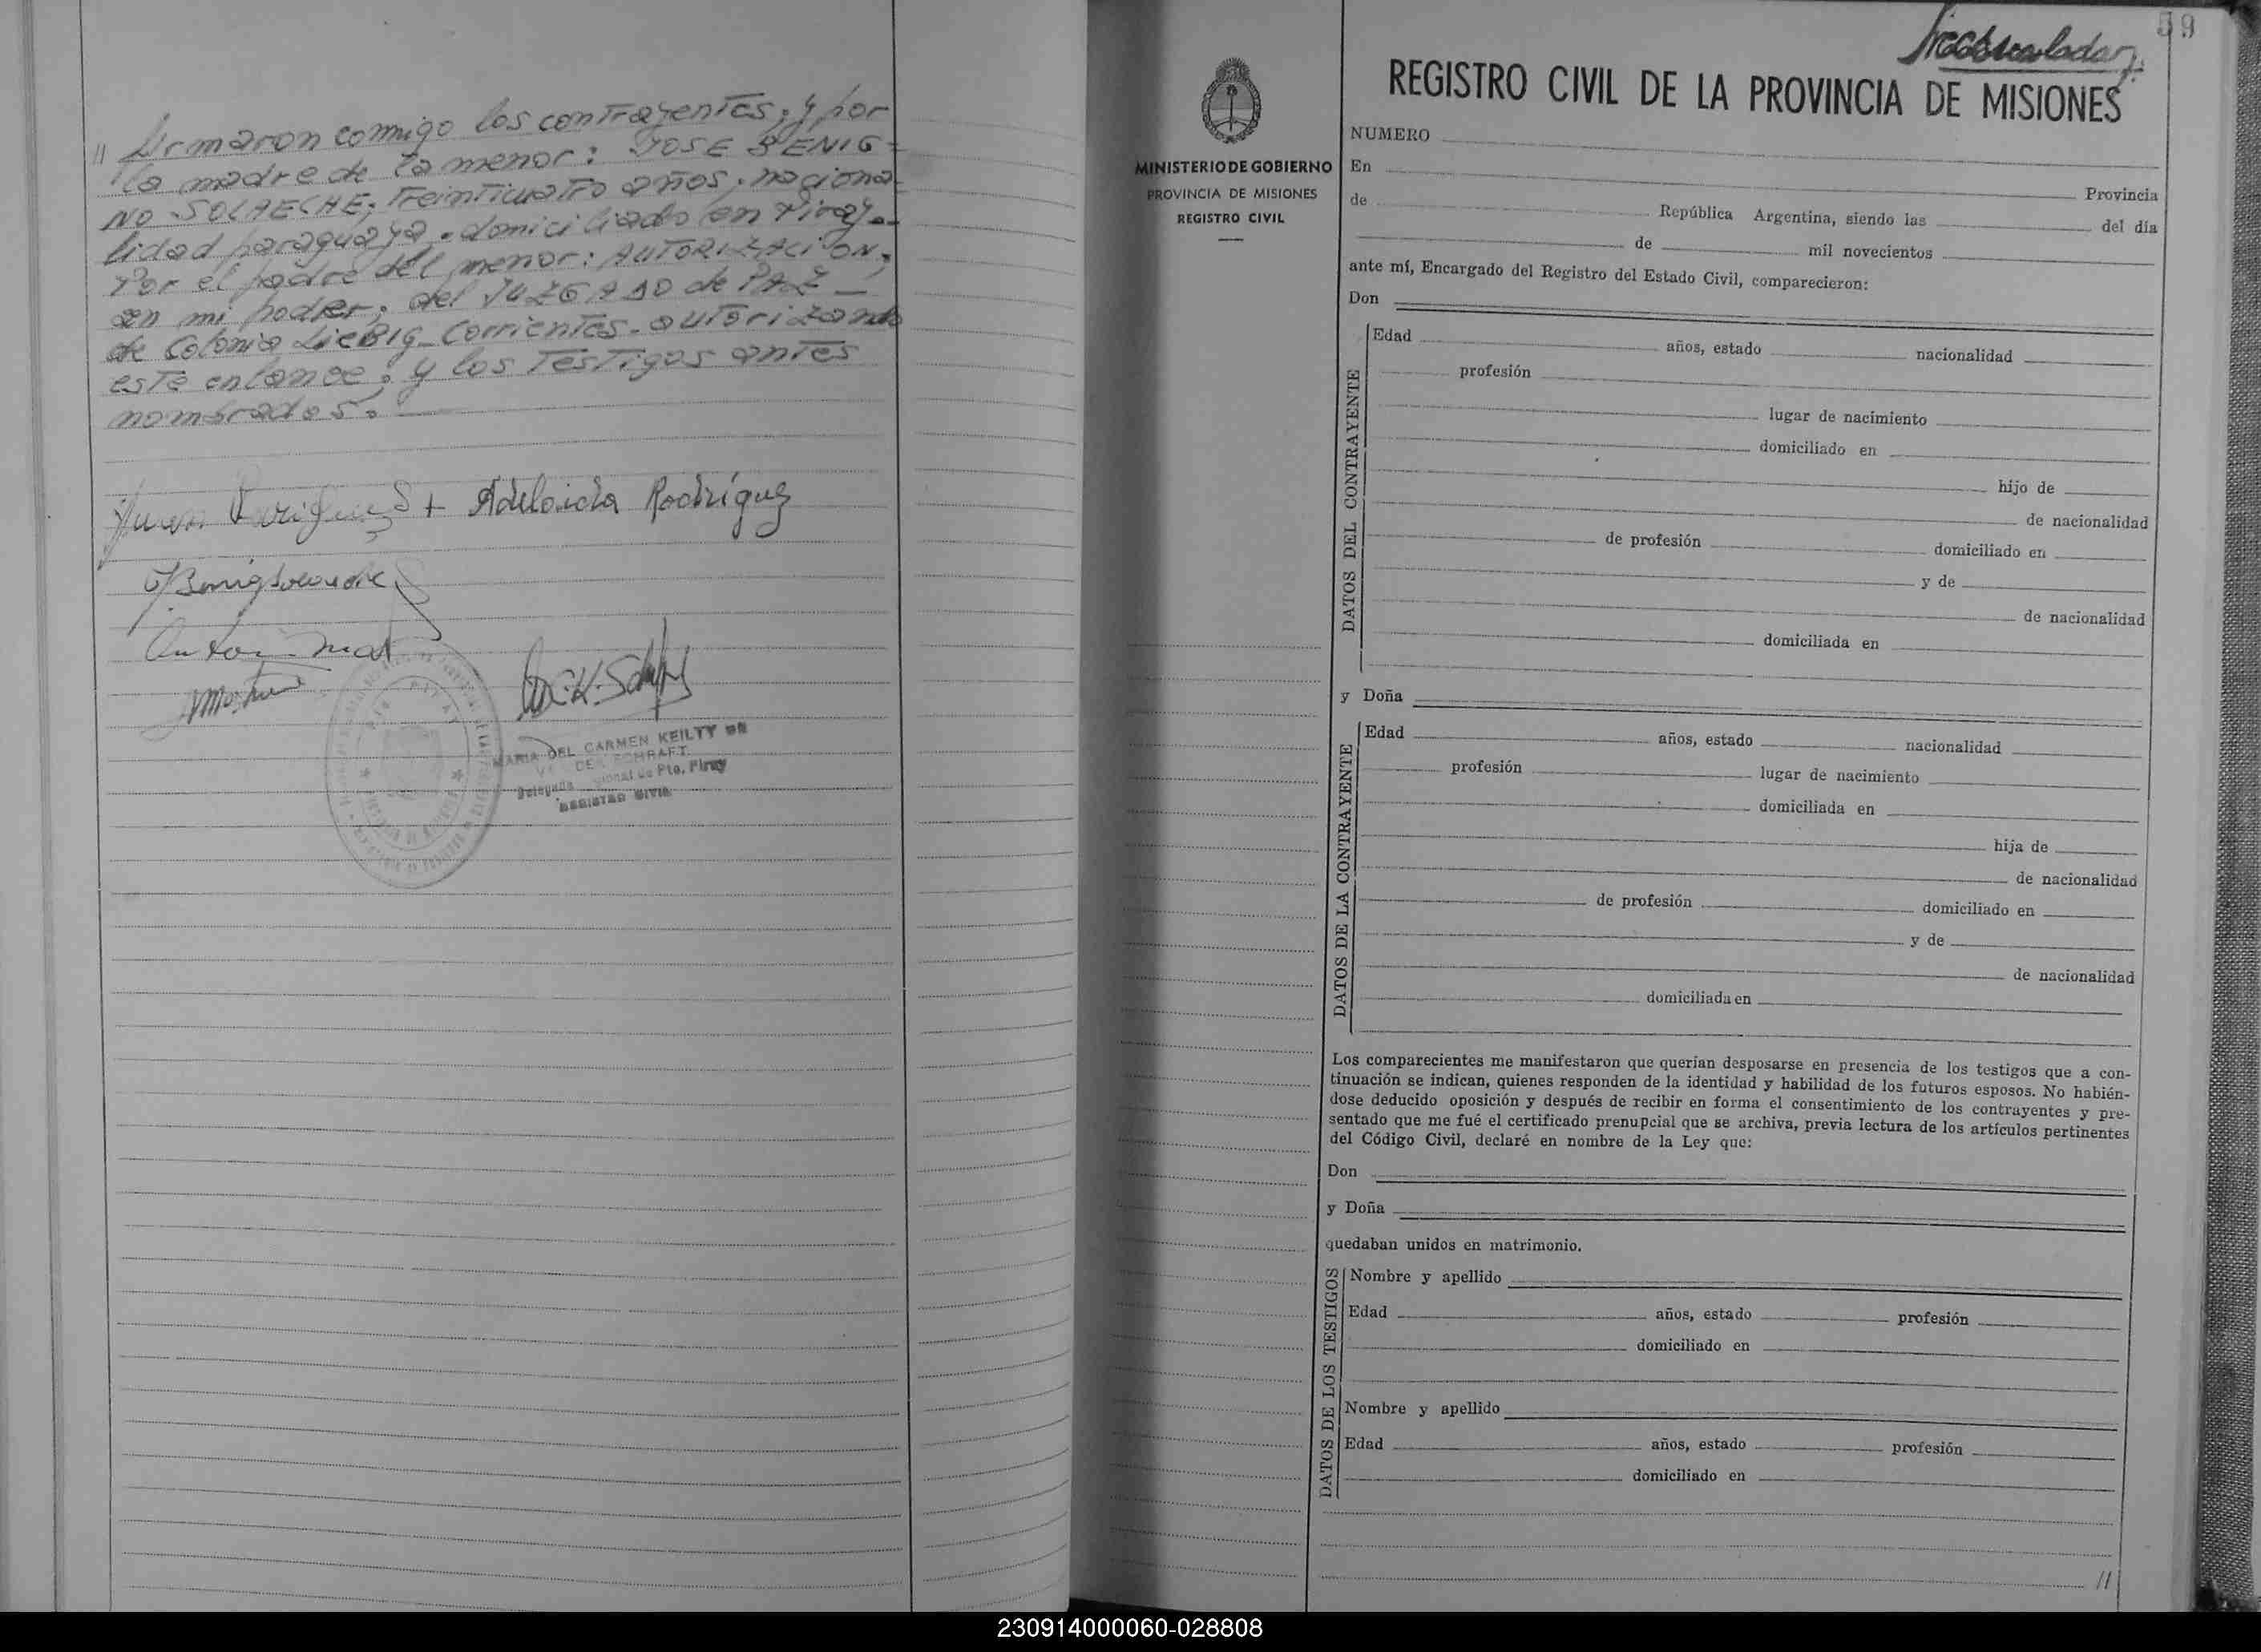 // Firmaron conmigo los contrayentes; y por
la madre de la menor: JOSE BENIG=
NO SOLAECHE; treinticuatro años, naciona-
lidad paraguaya. domiciliado en Piray.-
Por el padre del menor: AUTORIZACION,
en mi poder; del JUZGADO de PAZ -
de Colonia LieBIg - Corrientes - autorizando
este enlance; y los Testigos antes
nombrados.
+ Adelaida Rodríguez
MARIA DEL CARMEN KEILTY DE
REGISTRO CIVIL
59
MINISTERIO DE GOBIERNO
PROVINCIA DE MISIONES
REGISTRO CIVIL
REGISTRO CIVIL DE LA PROVINCIA DE MISIONES
NUMERO
En
Provincia
de República Argentina, siendo las del día
de mil novecientos
ante mí, Encargado del Registro del Estado Civil, comparecieron:
Don
DATOS DEL CONTRAYENTE
Edad años, estado nacionalidad
profesión
lugar de nacimiento
domiciliado en
hijo de
de nacionalidad
de profesión domiciliado en
y de
de nacionalidad
domiciliada en
y Doña
DATOS DE LA CONTRAYENTE
Edad años, estado nacionalidad
profesión lugar de nacimiento
domiciliada en
hija de
de nacionalidad
de profesión domiciliado en
y de
de nacionalidad
domiciliada en
Los comparecientes me manifestaron que querían desposarse en presencia de los testigos que a con-
tinuación se indican, quienes responden de la identidad y habilidad de los futuros esposos. No habién-
dose deducido oposición y después de recibir en forma el consentimiento de los contrayentes y pre-
sentado que me fué el certificado prenupcial que se archiva, previa lectura de los artículos pertinentes
del Código Civil, declaré en nombre de la Ley que:
Don
y Doña
quedaban unidos en matrimonio.
DATOS DE LOS TESTIGOS
Nombre y apellido
Edad años, estado profesión
domiciliado en
Nombre y apellido
Edad años, estado profesión
domiciliado en
//
230914000060-028808